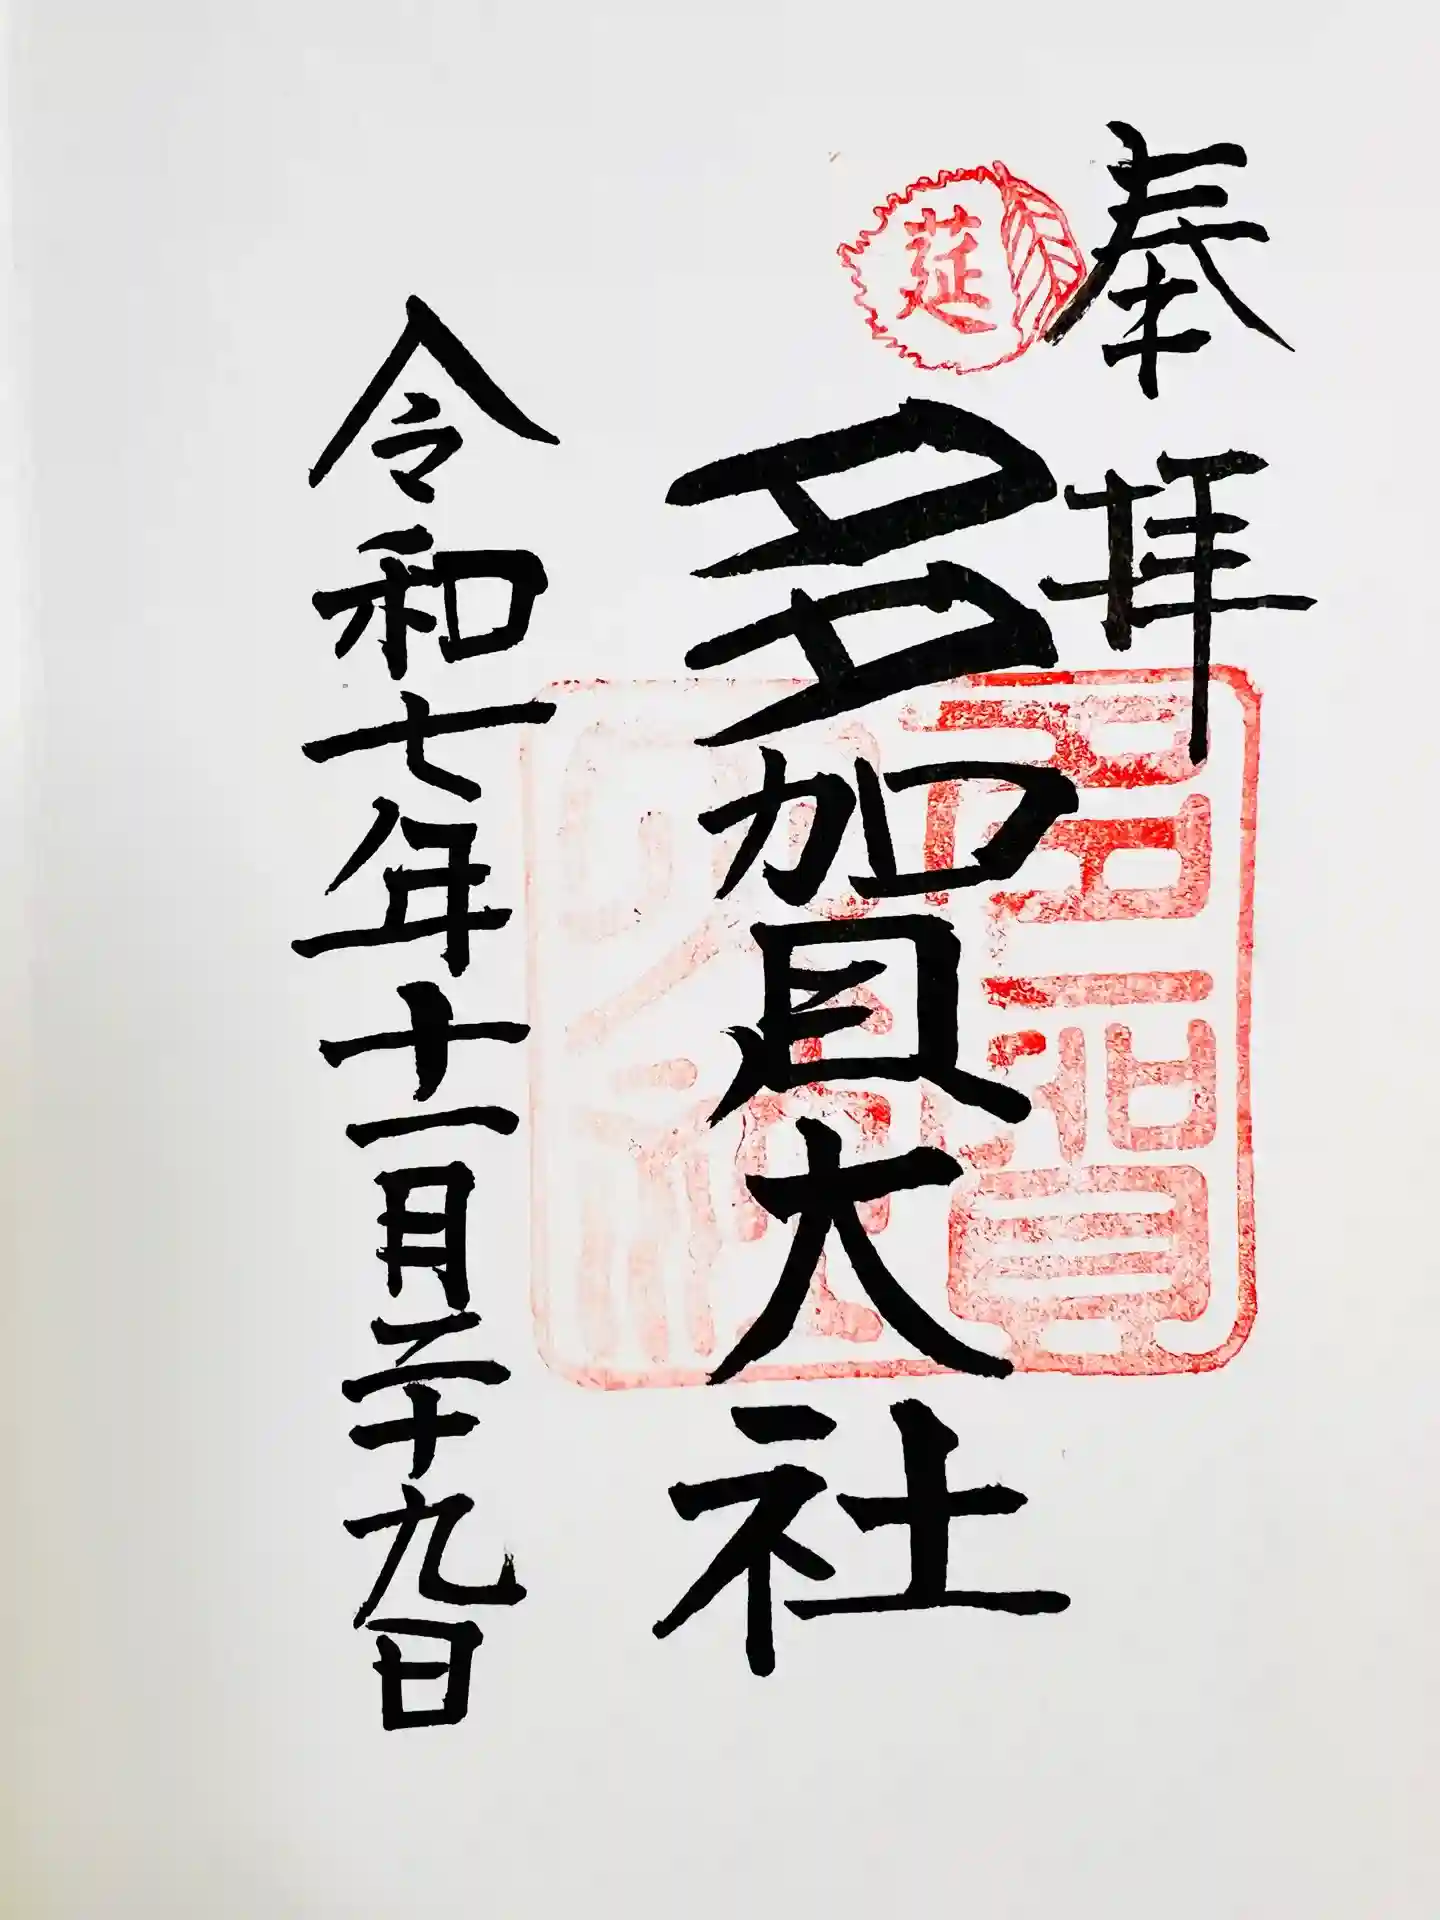 奉拝
莚
多賀大社
多賀大社
令和七年十一月二十九日